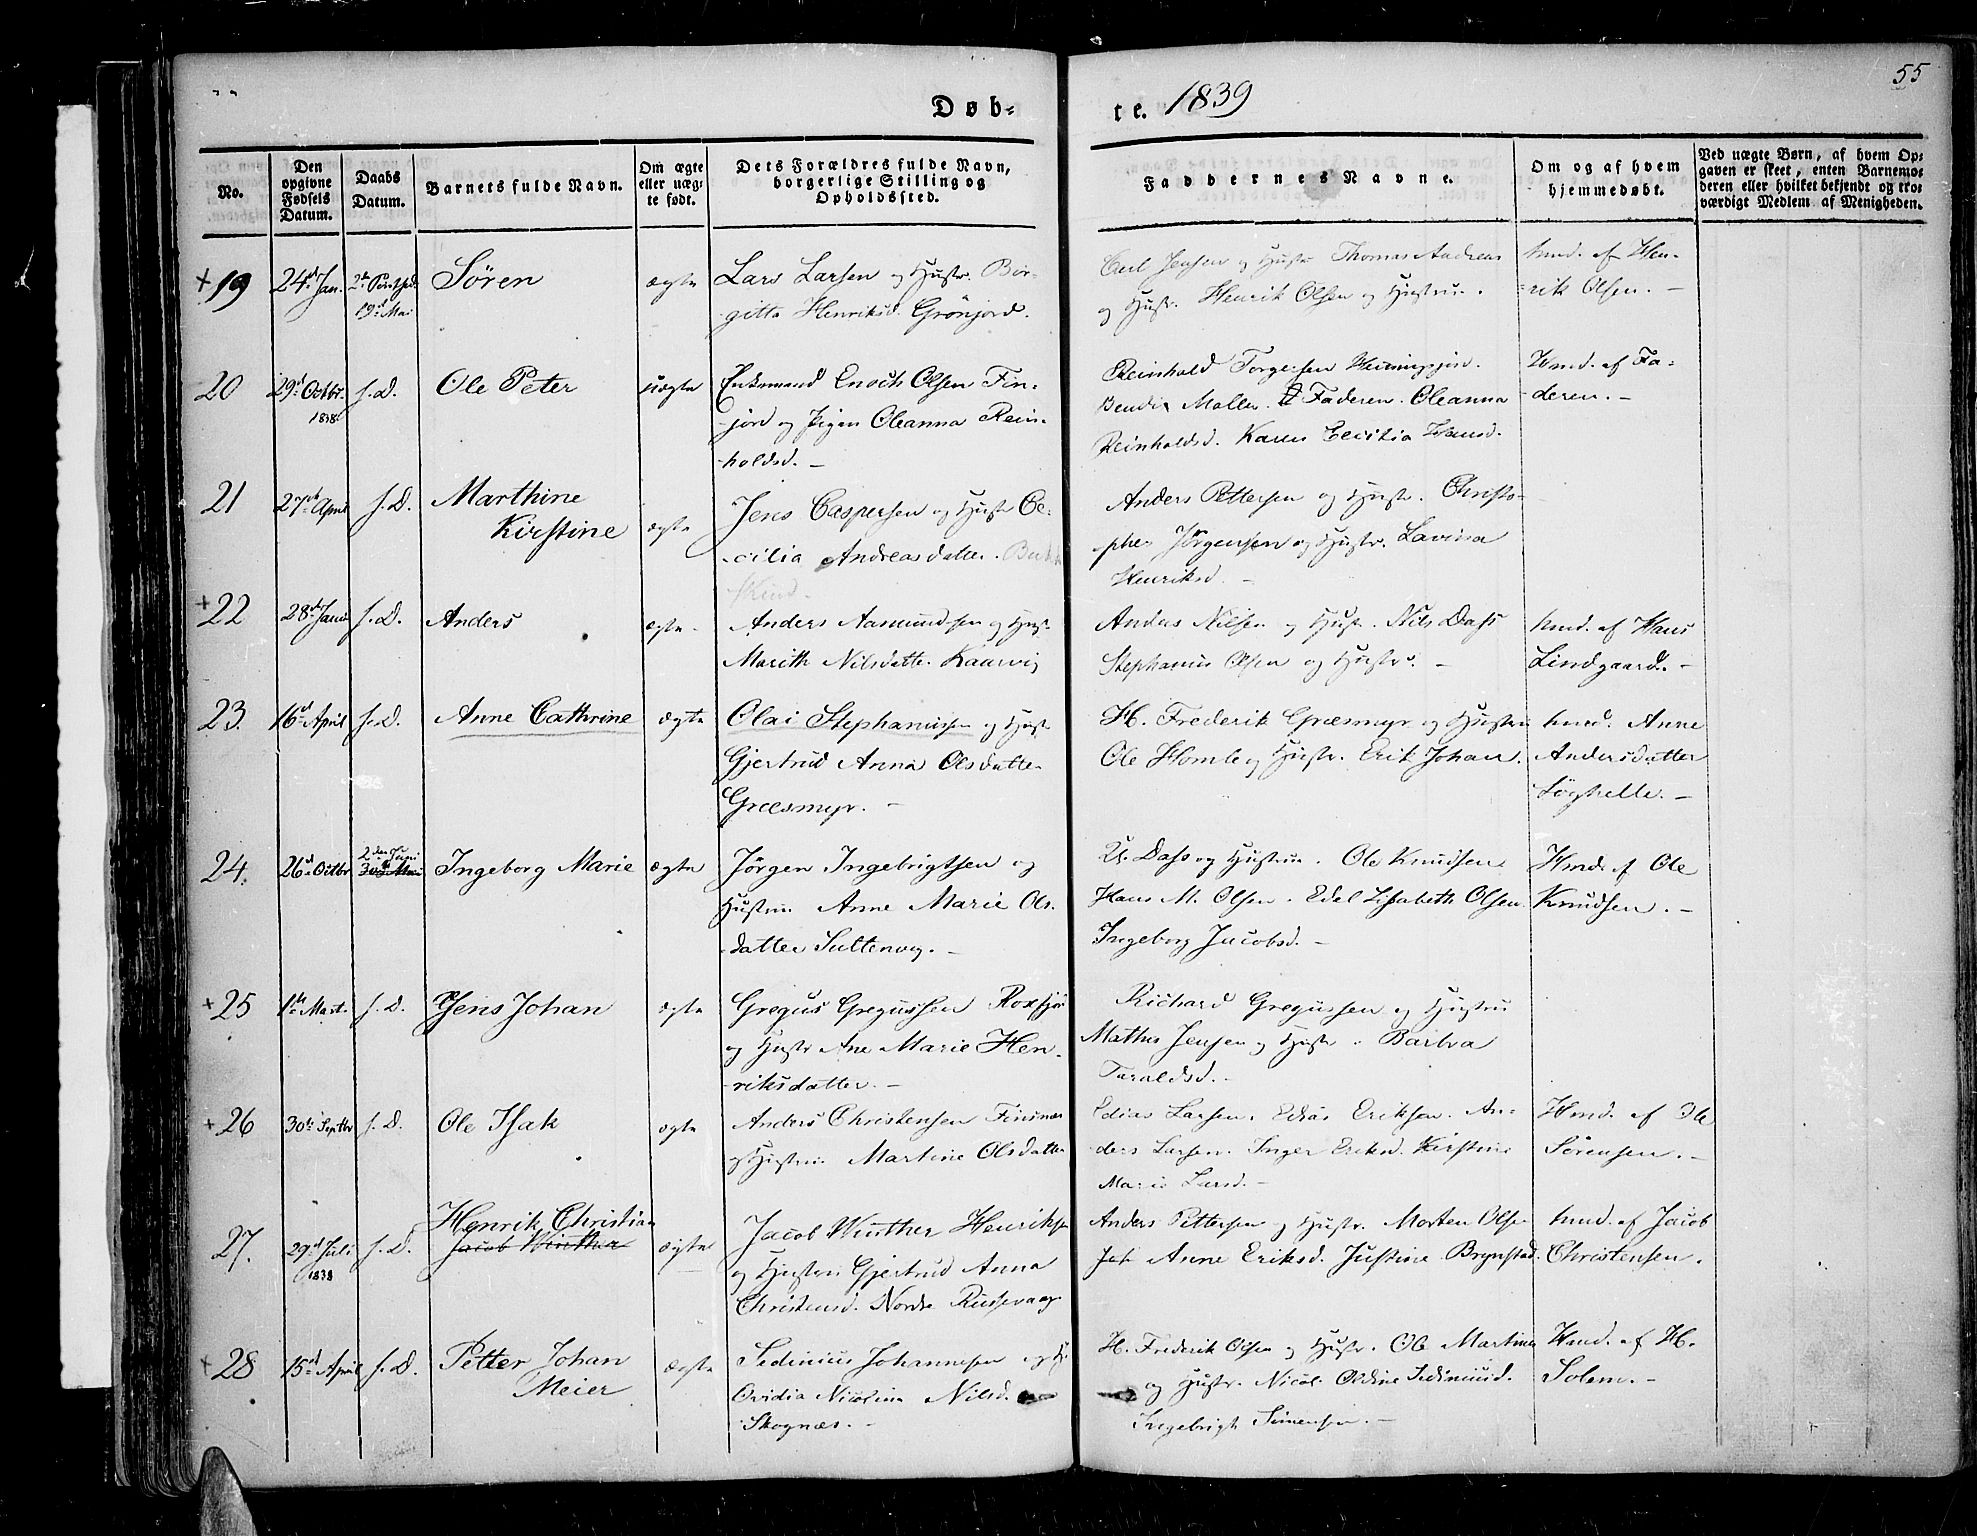 55
Døb- te. 1839
No.
Den opgivne Fødsels Datum.
Daabs Datum.
Barnets fulde Navn.
Om ægte eller uæg- te født.
Dets Forældres fulde Navn, borgerlige Stilling og Opholdssted.
Faddernes Navne.
Om og af hvem hjemmedøbt.
Ved uægte Børn, af hvem Op- gaven er skeet, enten Barnemo- deren eller hvilket bekjendt og tro- værdigt Medlem af Menigheden.
+ 19 24d Jan. 19d Mai Søren ægte Lars Larsen og Hustr. Bir-
gitta Henriksd. Grönjord.
Carl Jensen og Hustr Thomas Andreas
og Hustr. Henrik Olsen og Hustru.
hmd. af Hen-
rik Olsen. -
20 29d Octbr. 1838 s. D. Ole Peter uægte Enkemand Enoch Olsen Fin-
jord og Pigen Oleanna Rein-
holdsd. -
Reinhold Torgersen
Bendix Moller. Faderen. Oleanna
Reinholdsd. Karen Cecilia Hansd.
Hmd. af Fa-
deren. -
21 27de April s. D. Marthine
Kirstine ægte Jens Caspersen og Hustr Ce-
cilia Andreasdatter.
Anders Pettersen og Hustr. Christo-
pher Jörgensen og Hustr. Lavina
Henriksd. -
+ 22 28d Janu s. D. Anders ægte Anders Aamundsen og Hust
Marith Nilsdatter Kaarvig
Andreas Nilsen og Hustr. Nils Dass
Stephanus Olsen og Hustr. -
hmd. af Hans
Lindgaard. -
23. 16d April s. D. Anne Cathrine ægte Olai Stephanussen og Hust
Gjertrud Anna Olsdatter
Græsmyr. -
H. Frederik Græsmyr og Hustru
Ole Homle og Hustr. Erik Johan.
hmd. Anne
Andersdatter
24. 26d Octbr 2den Juni Ingeborg Marie ægte Jörgen Ingebrigtsen og
Hustru Anne Marie Ols-
datter Sultenvig. -
U. Dass og Hustru. Ole Knudsen
Hans M. Olsen. Edel Lisabeth Olsen.
Ingeborg Jacobsd. -
Hmd. af Ole
Knudsen. -
+ 25 1te Mart. s. D. Jens Johan ægte Gregus Gregussen Roxfjor
og Hustr Ane Marie Hen-
riksdatter. -
Richard Gregussen og Hustru
Mathis Jensen og Hustr. Barbra
Taraldsd. -
+ 26 30te Septbr s. D. Ole Isak ægte Anders Christensen Finsnæs
og Hustru Martine Olsdatter
Edias Larsen. Edias Eriksen. An-
ders Larsen. Inger Eriksd. Kirstine
Marie Larsd. -
Hmd. af Ole
Sörensen. -
27. 29d Juli 1838 s. D. Henrik Christian
Jacob Winther ægte Jacob Winther Henriksen
og Hustru Gjertrud Anna
Christensd. Nordre Russevaag
Anders Pettersen og Hustr. Morten Olsen
Anne Eriksd. Justine Brynstad.
hmd. af Jacob
Christensen.
+ 28 15d April s. D. Petter Johan
Meier ægte Sedinius Johannesen og H
Ovidia Nicolina Nilsd.
Skognæs. -
H. Frederik Olsen og Hustr. Ole Martinus
og Hustr. Nicol. Oldine Sediniusd.
Ingebrigt Simensen. -
Hmd. af H.
Solem. -